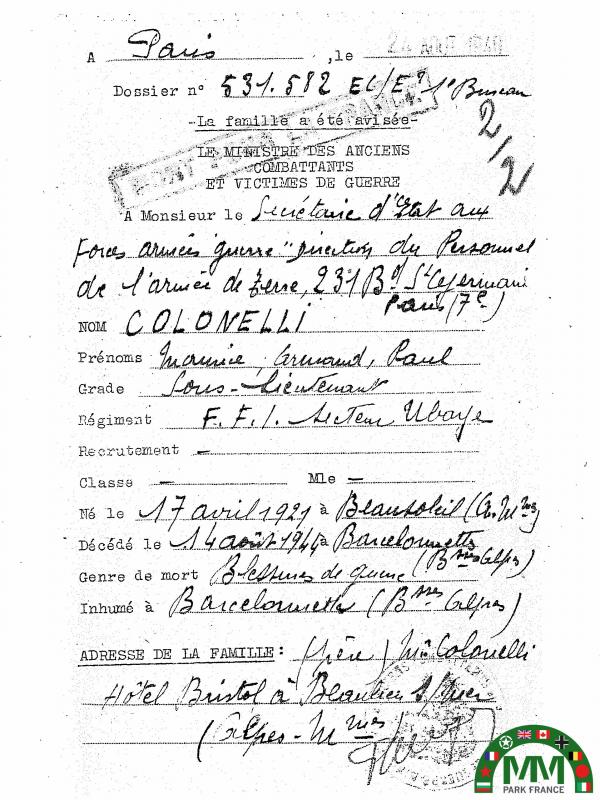 A Paris ,le 24 AOUT 1948
Dossier n° 531.582 EC/E9 1e Bureau
-La famille a été avisée-
2/2
LE MINISTRE DES ANCIENS
COMBATTANTS
ET VICTIMES DE GUERRE
A Monsieur le Secrétaire d'Etat aux
Forces armées "guerre" Direction du Personnel
de l'armée de terre, 231 Bd St Germain
Paris (7e)
NOM COLONELLI
Prénoms Maurice, Armand, Paul
Grade Sous-Lieutenant
Régiment F.F.I. Secteur Ubaye
Recrutement —
Classe — Mle —
Né le 17 avril 1921 à Beausoleil (A. Mmes)
Décédé le 14 août 1944 à Barcelonnette
(Bsses Alpes)
Genre de mort Blessures de guerre
Inhumé à Barcelonnette (Bsses Alpes)
ADRESSE DE LA FAMILLE: (père) Mr Colonelli
Hôtel Bristol à Beaulieu s/mer
(Alpes-Mmes)
MM
PARK FRANCE